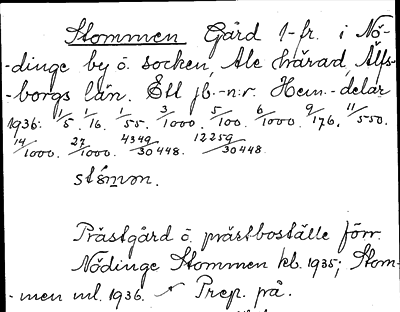 Stommen Gård 1-fr. i Nö-
-dinge by o. socken, Ale härad, Älfs-
-borgs län. Ett jb.-n:r. Hem.-delar
1936: 1/5. 1/16. 1/55. 3/1000. 5/100. 6/1000. 9/176. 11/550.
14/1000. 27/1000. 4349/30448. 12259/30448
stómmn.
Prästgård o. prästboställe förr.
Nödinge Stommen kb. 1935; Stom-
-men ml. 1936. Prep. på.